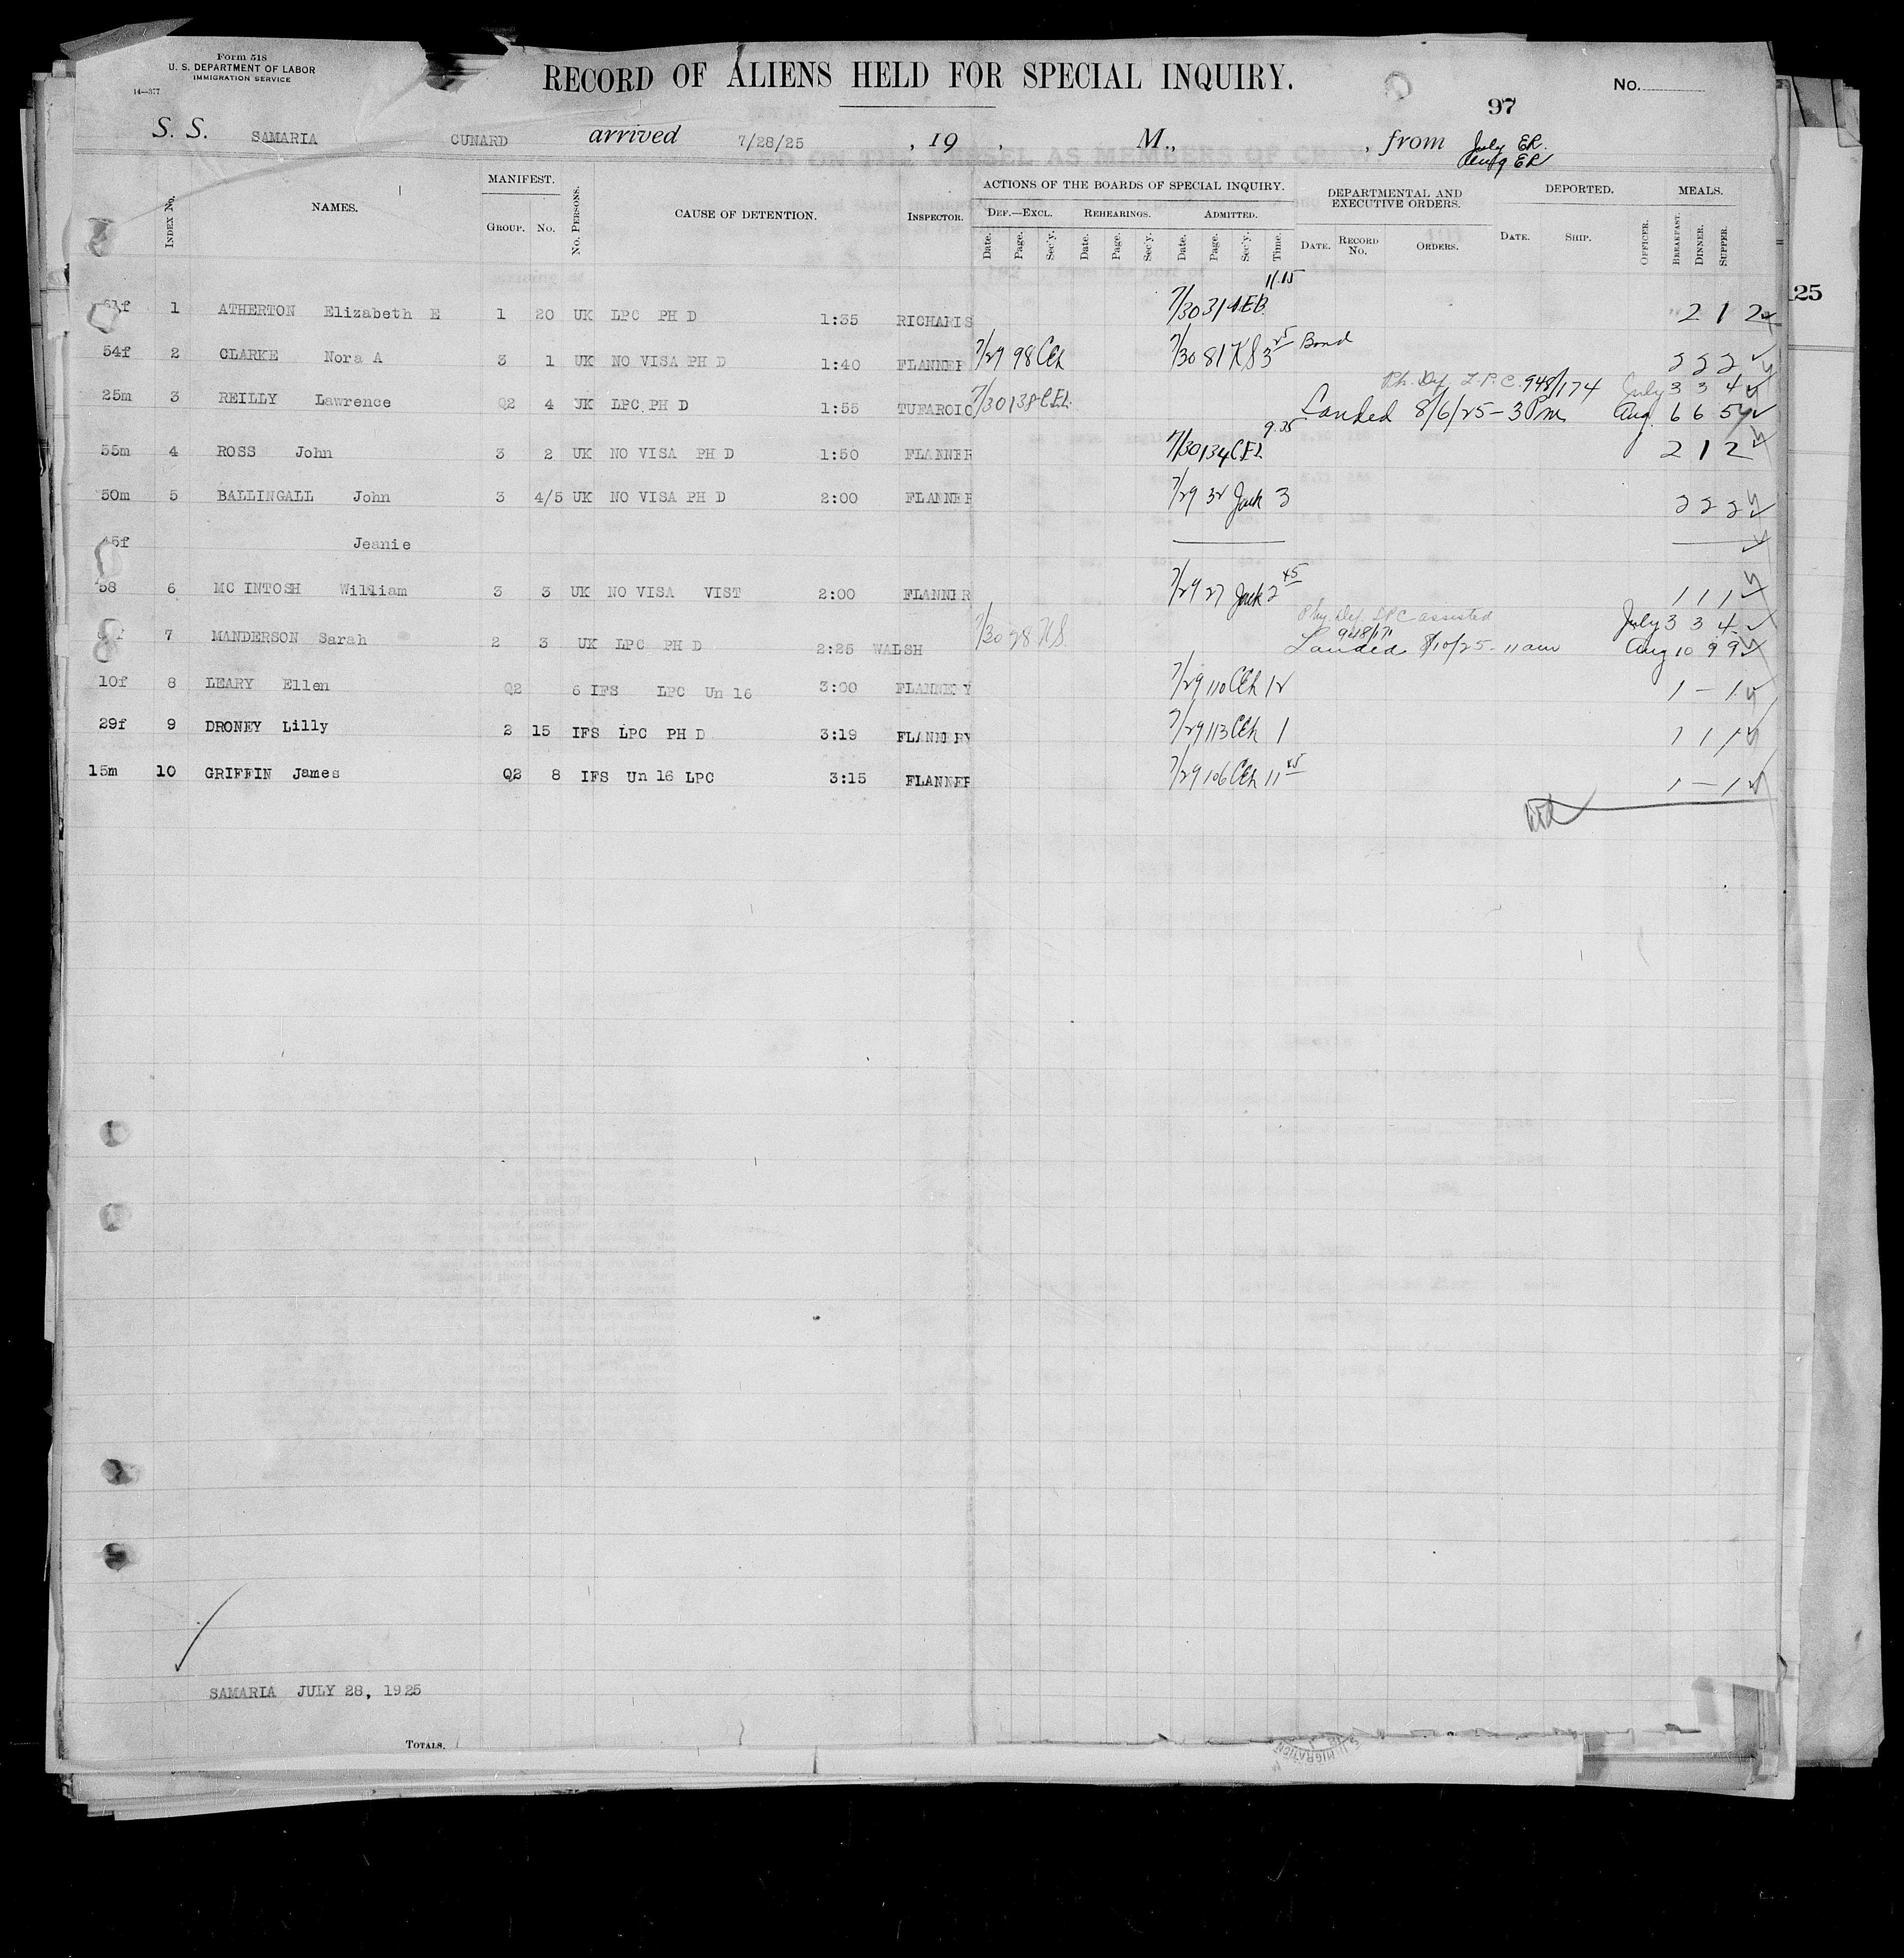 Form 518
U. S. DEPARTMENT OF LABOR
IMMIGRATION SERVICE
14—377
RECORD OF ALIENS HELD FOR SPECIAL INQUIRY.
No.
97
S. S. SAMARIA CUNARD arrived 7/28/25 , 19 , M., , from July ER.
Aug ER
INDEX No. NAMES. MANIFEST. GROUP. No. No. PERSONS. CAUSE OF DETENTION. INSPECTOR. ACTIONS OF THE BOARDS OF SPECIAL INQUIRY. DEF.—EXCL. REHEARINGS. ADMITTED. DEPARTMENTAL AND EXECUTIVE ORDERS. DEPORTED. MEALS.
Date. Page. Sec'y. Date. Page. Sec'y. Date. Page. Sec'y. Time. DATE. RECORD No. ORDERS. DATE. SHIP. OFFICER. BREAKFAST. DINNER. SUPPER.
11.15
1 ATHERTON Elizabeth E 1 20 UK LPC PH D 1:35 RICHARIS 7/30 2 1 2
54f 2 CLARKE Nora A 3 1 UK NO VISA PH D 1:40 FLANNER 7/29 98 CEh 7/30 81 KS 3 25 Bond 2 2 2
Ph. Def L.P.C. 948/174 July 3 3 4
25m 3 REILLY Lawrence Q2 4 UK LPC PH D 1:55 TUFAROIO 7/30 138 CEL Landed 8/6/25 - 3 Pm Aug. 6 6 5
9.25
55m 4 ROSS John 3 2 UK NO VISA PH D 1:50 FLANNER 7/30 134 CEL 2 1 2
50m 5 BALLINGALL John 3 4/5 UK NO VISA PH D 2:00 FLANNER 7/29 32 Jack 3 2 2 2
45f Jeanie
58 6 MC INTOSH William 3 3 UK NO VISA VIST 2:00 FLANNER 7/29 27 Jack 2 45 1 1 1
Phy. Def LPC assisted July 3 3 4
948/171
7 MANDERSON Sarah 2 3 UK LPC PH D 2:25 WALSH 7/30 28 Landed 8/10/25 - 11 am Aug 10 9 9
10f 8 LEARY Ellen Q2 6 IFS LPC Un 16 3:00 FLANNERY 7/29 110 CEh 12 1 — 1
29f 9 DRONEY Lilly 2 15 IFS LPC PH D 3:19 FLANNERY 7/29 113 CEh 1 1 1 1
15m 10 GRIFFIN James Q2 8 IFS Un 16 LPC 3:15 FLANNER 7/29 106 CEh 11 45 1 — 1
25
SAMARIA JULY 28, 1925
TOTALS.